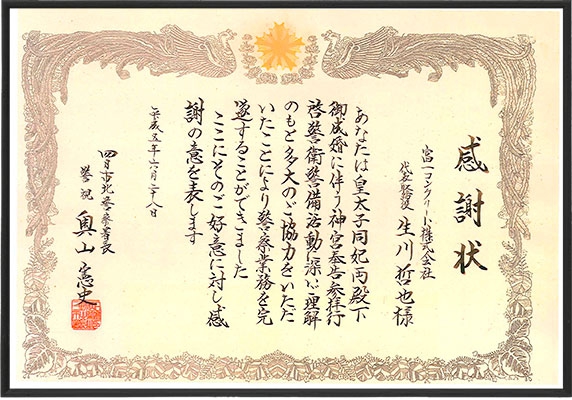 感謝状
富一コンクリート株式会社
代表取締役 生川哲也様
あなたは皇太子同妃両殿下
御成婚に伴う神宮奉告参拝行
啓警衛警備活動に深いご理解
のもと多大のご協力をいただ
いたことにより警察業務を完
遂することができました
ここにそのご好意に対し感
謝の意を表します
平成五年六月二十八日
四日市北警察署長
警視 奥山憲史